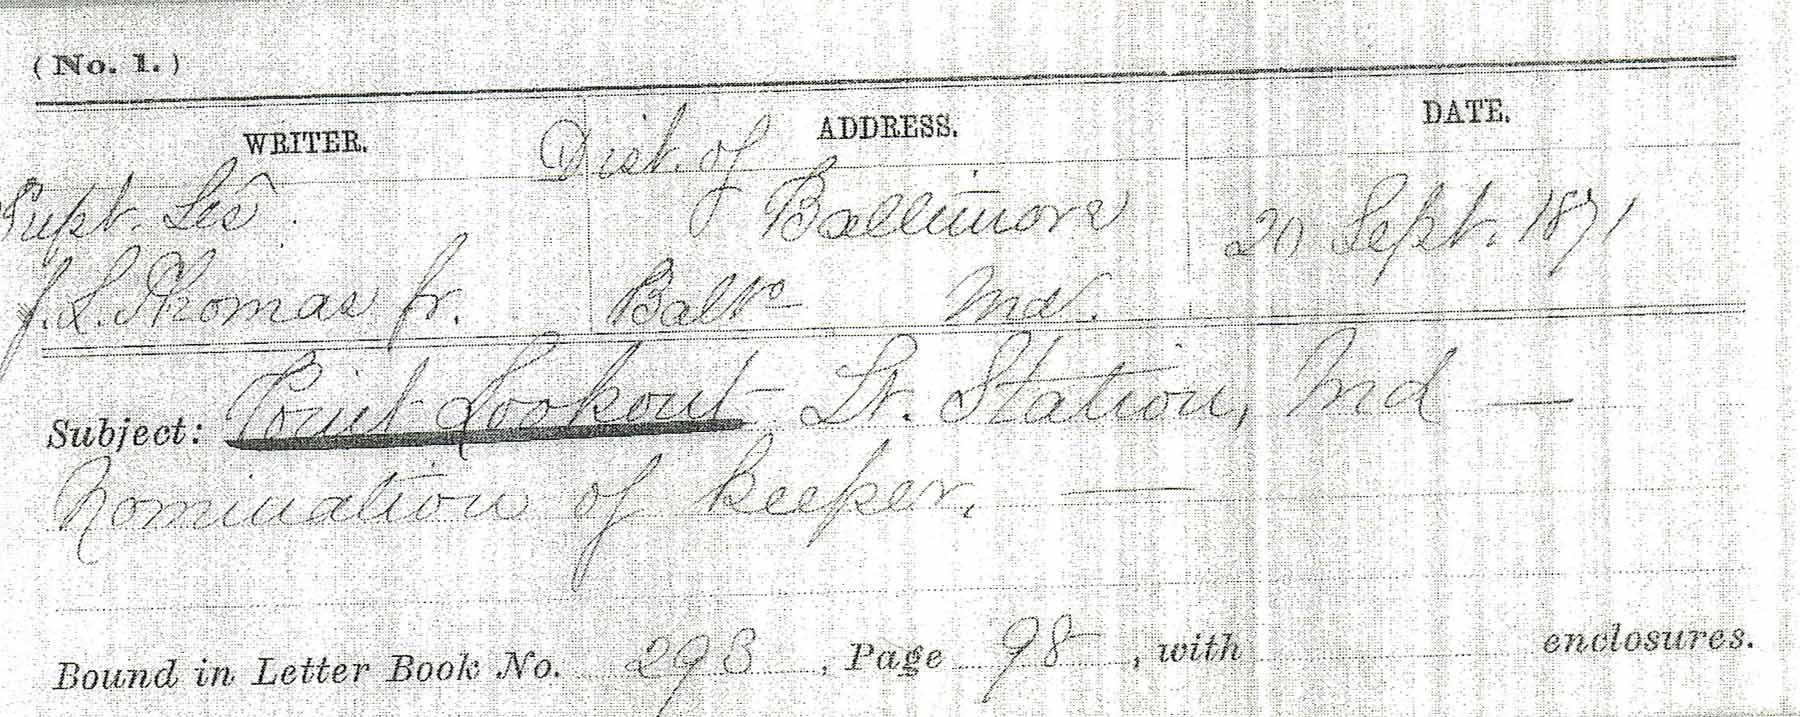 (No. 1.)
WRITER. ADDRESS. DATE.
Supt. Lts. Dist. of Baltimore 20 Sept. 1871
J. L. Thomas Jr. Balto Md.
Subject: Point Lookout Lt. Station, Md —
Nomination of keeper. —
Bound in Letter Book No. 293, Page 98, with enclosures.